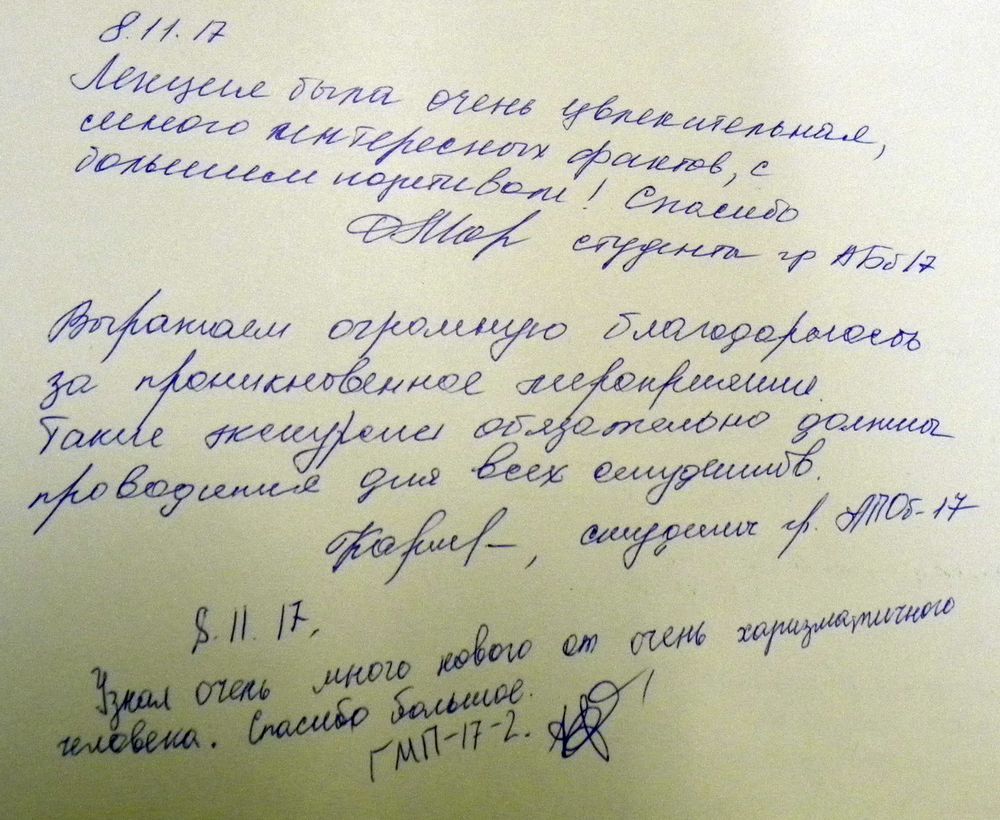 8.11.17
Лекция была очень увлекательная,
много интересных фактов, с
большим позитивом! Спасибо
студенты гр АБб17
Выражаем огромную благодарность
за проникновенное мероприятие.
Такие экскурсии обязательно должны
проводится для всех студентов.
, студенты гр. АПОб-17
8.11.17.
Узнал очень много нового от очень харизматичного
человека. Спасибо большое.
ГМП-17-2.